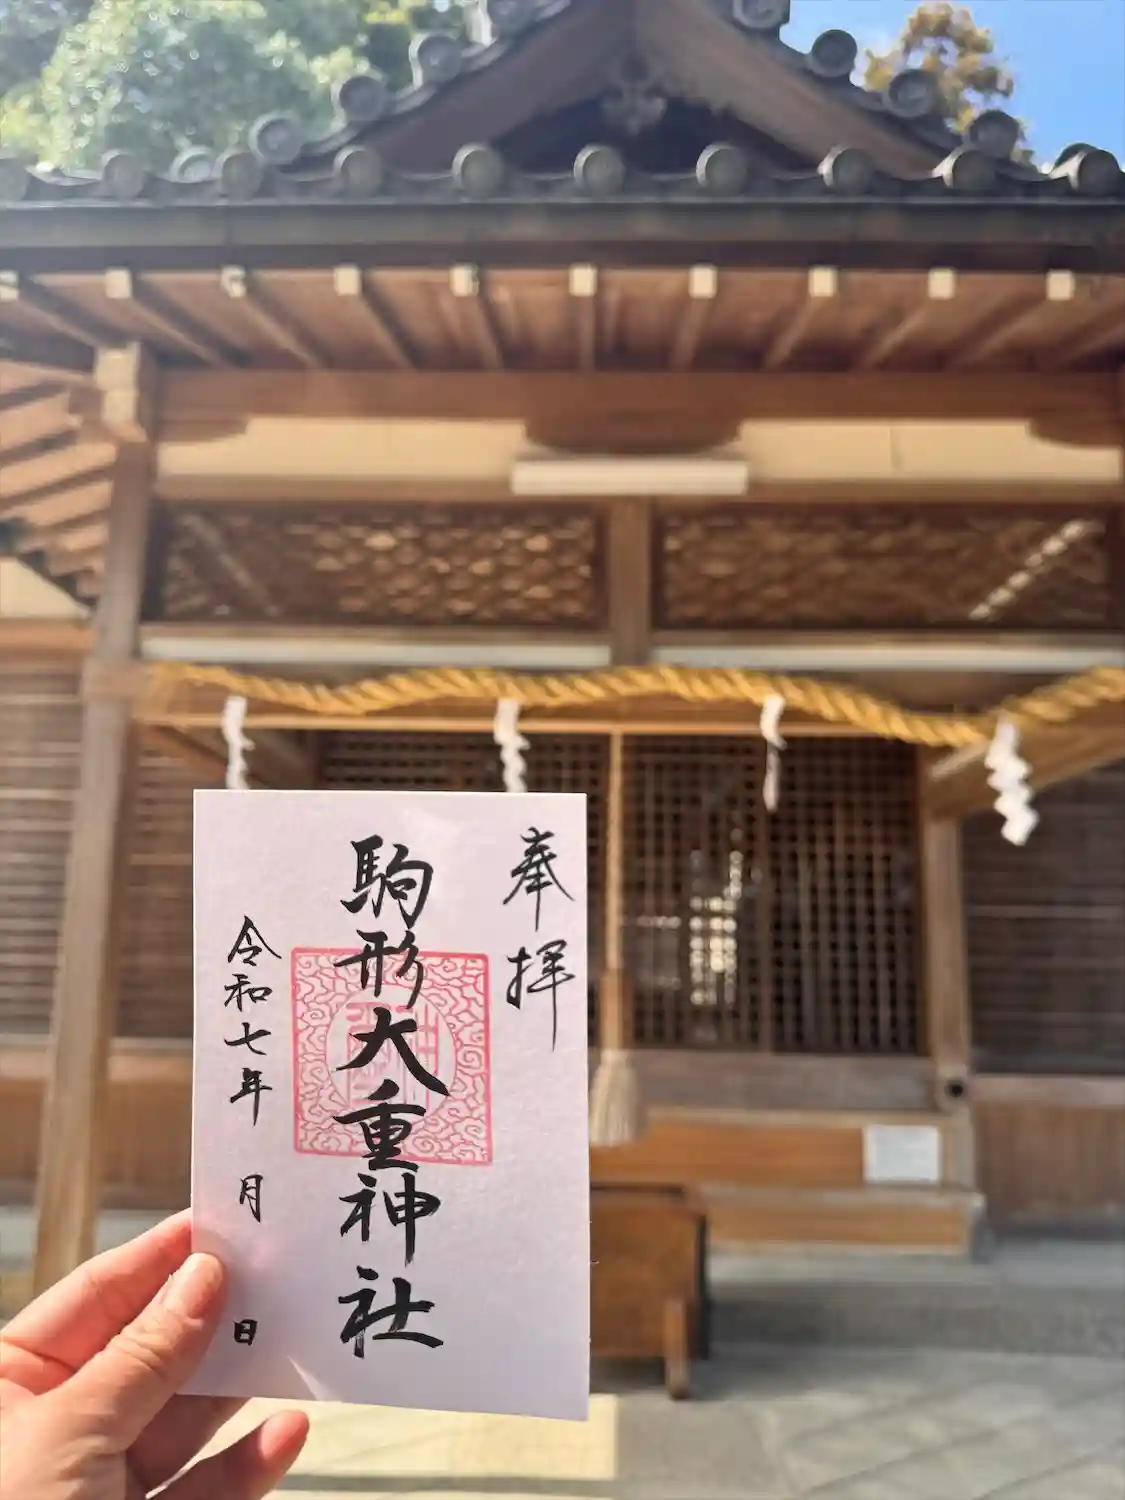 奉拝
駒形大重神社
令和七年 月 日